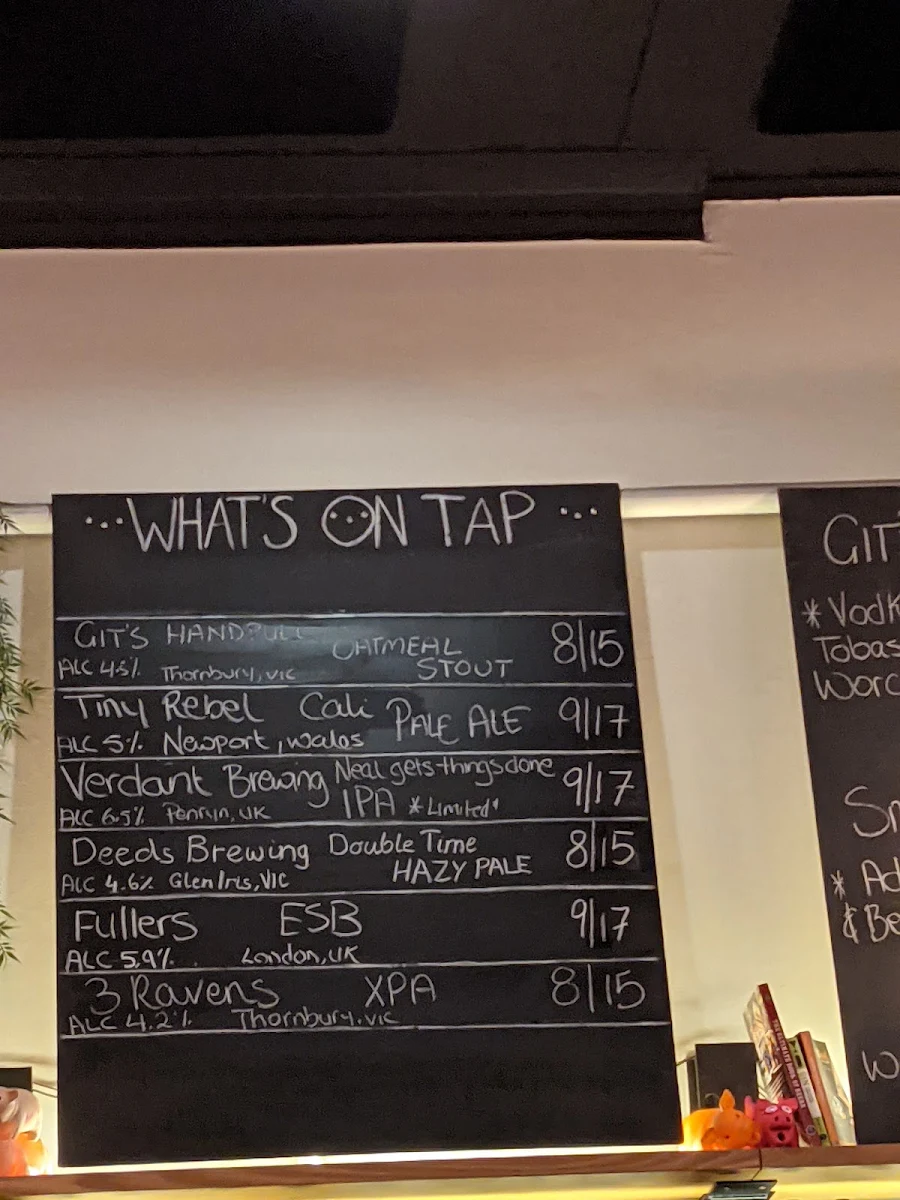 WHAT'S ON TAP
GIT'S HANDPULL OATMEAL STOUT 8/15
ALC 4.5% Thornbury, VIC
Tiny Rebel Cali PALE ALE 9/17
ALC 5% Newport, Wales
Verdant Brewing Neal gets things done 9/17
IPA *Limited*
ALC 6.5% Penryn, UK
Deeds Brewing Double Time 8/15
HAZY PALE
ALC 4.6% Glen Iris, VIC
Fullers ESB 9/17
ALC 5.9% London, UK
3 Ravens XPA 8/15
ALC 4.2% Thornbury, VIC
GIT
* Vodk
Tobas
Worc
* Ad
& Be